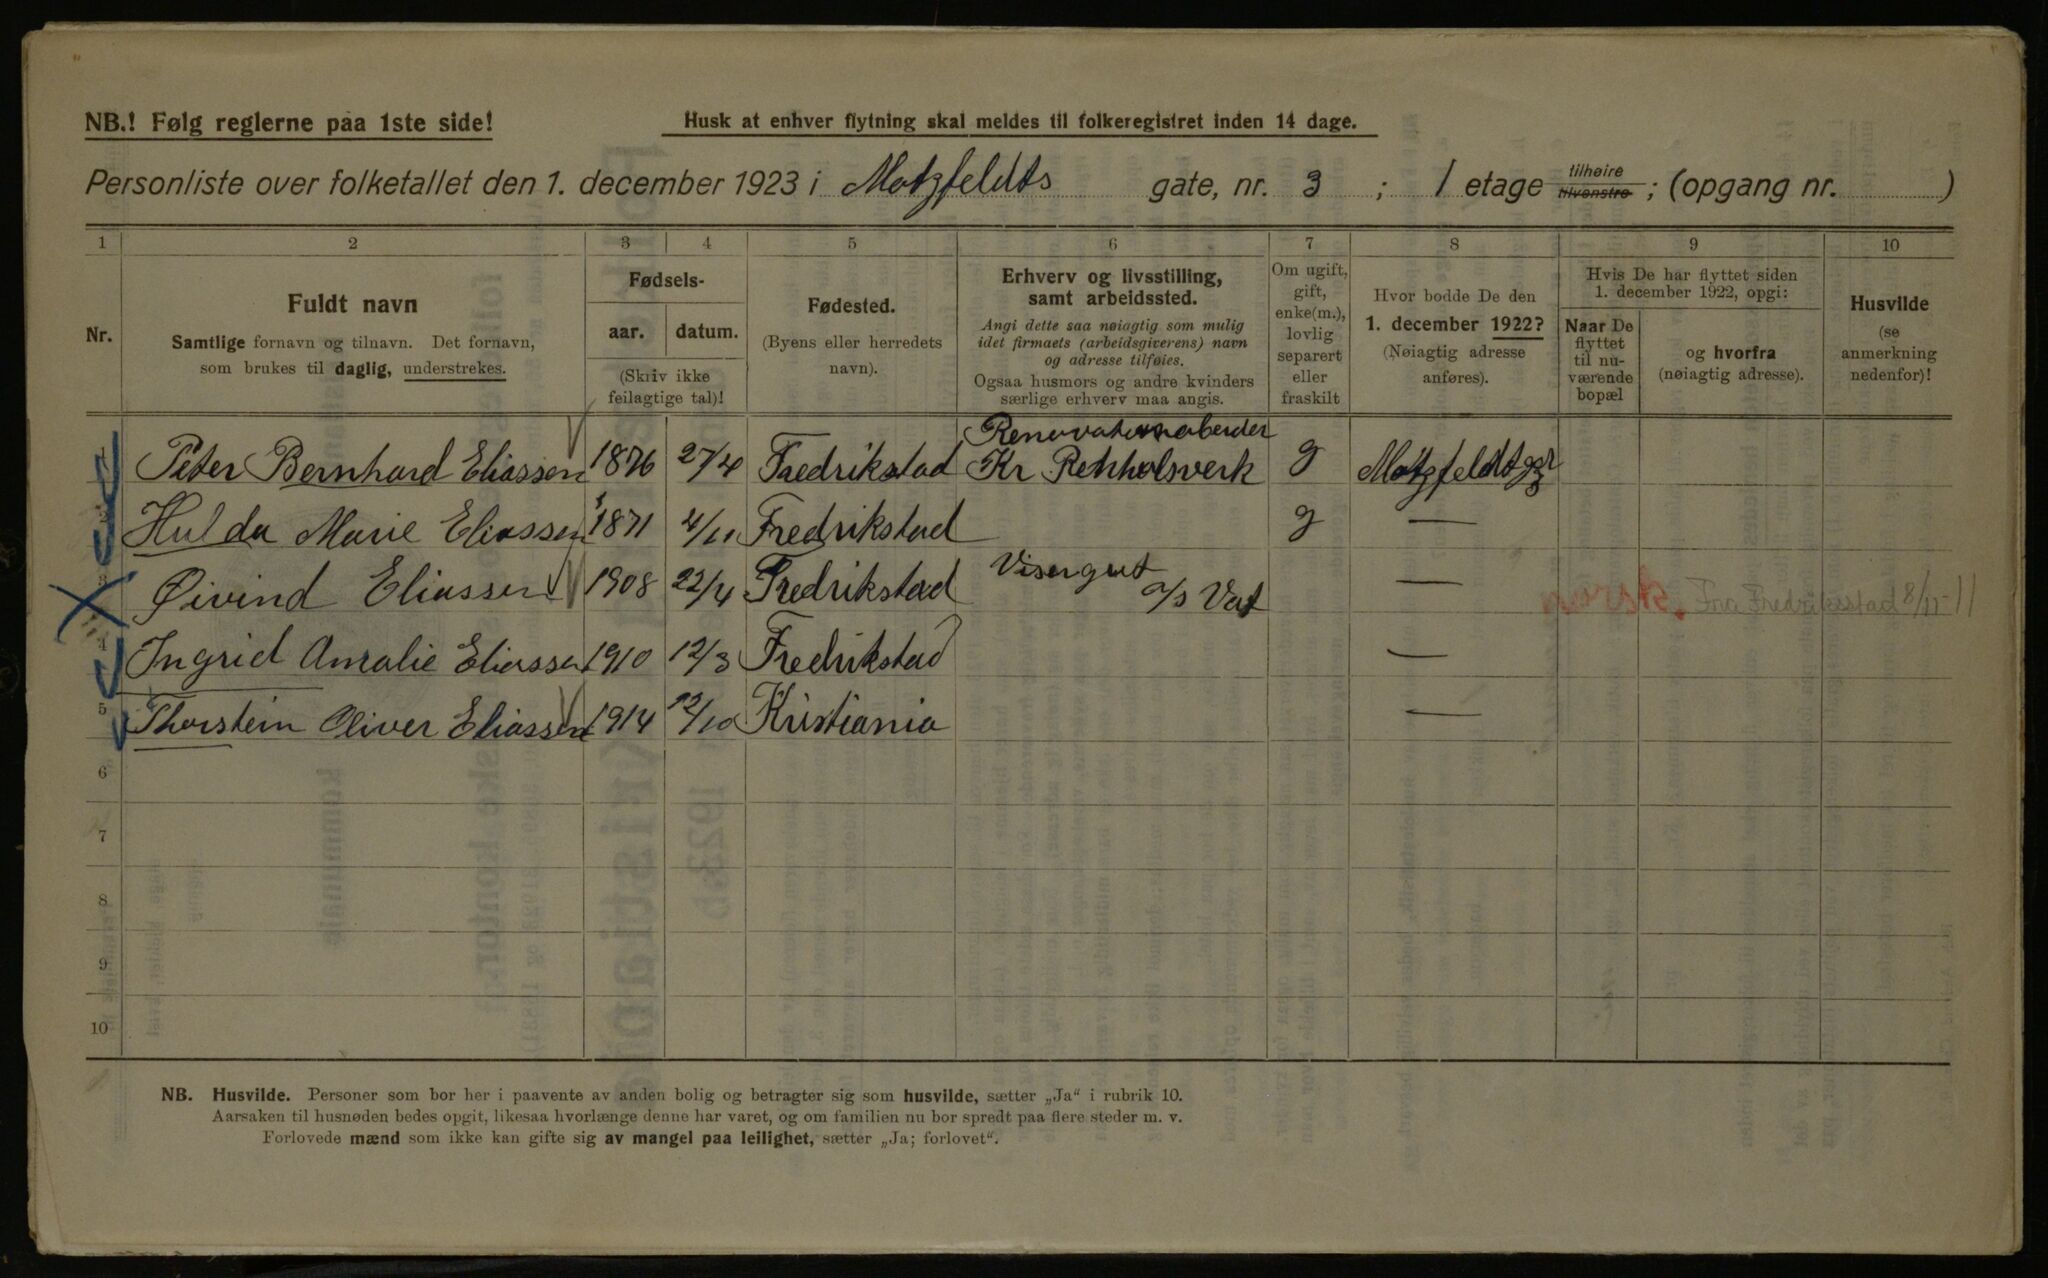 NB.! Følg reglerne paa 1ste side!
Husk at enhver flytning skal meldes til folkeregistret inden 14 dage.
Personliste over folketallet den 1. december 1923 i Motzfeldts gate, nr. 3 ; 1 etage tilhøire tilvenstre ; (opgang nr. )
1 2 3 4 5 6 7 8 9 10
Nr.
Fuldt navn
Samtlige fornavn og tilnavn. Det fornavn,
som brukes til daglig, understrekes.
Fødsels-
aar. datum.
(Skriv ikke
feilagtige tal)!
Fødested.
(Byens eller herredets
navn).
Erhverv og livsstilling,
samt arbeidssted.
Angi dette saa nøiagtig som mulig
idet firmaets (arbeidsgiverens) navn
og adresse tilføies.
Ogsaa husmors og andre kvinders
særlige erhverv maa angis.
Om ugift,
gift,
enke(m.),
lovlig
separert
eller
fraskilt
Hvor bodde De den
1. december 1922?
(Nøiagtig adresse
anføres).
Hvis De har flyttet siden
1. december 1922, opgi:
Naar De
flyttet
til nu-
værende
bopæl
og hvorfra
(nøiagtig adresse).
Husvilde
(se
anmerkning
nedenfor)!
Peter Bernhard Eliassen 1876 27/4 Fredrikstad Kr Renholsverk g Motzfeldtsgt 3
2 Hulda Marie Eliassen 1871 4/11 Fredrikstad g —
3 Øivind Eliassen 1908 22/4 Fredrikstad Visergut A/S Vat — norsk. Fra Fredrikstad 8/11-11
4 Ingrid Amalie Eliassen 1910 12/3 Fredrikstad —
5 Thorstein Oliver Eliassen 1914 12/10 Kristiania —
6
7
8
9
10
NB. Husvilde. Personer som bor her i paavente av anden bolig og betragter sig som husvilde, sætter „Ja“ i rubrik 10.
Aarsaken til husnøden bedes opgit, likesaa hvorlænge denne har varet, og om familien nu bor spredt paa flere steder m. v.
Forlovede mænd som ikke kan gifte sig av mangel paa leilighet, sætter „Ja; forlovet“.